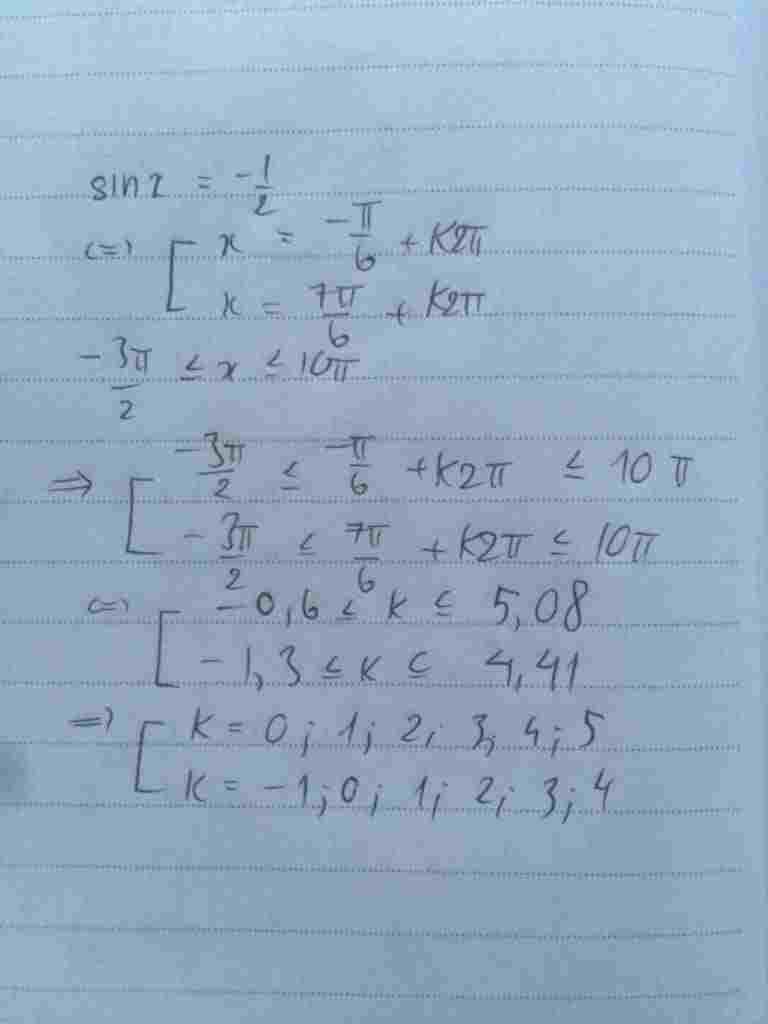 sin x = -1/2
<=> [ x = -π/6 + K2π
x = 7π/6 + K2π
-3π/2 ≤ x ≤ 10π
=> [ -3π/2 ≤ -π/6 + K2π ≤ 10π
-3π/2 ≤ 7π/6 + K2π ≤ 10π
<=> [ -0,6 ≤ K ≤ 5,08
-1,3 ≤ K ≤ 4,41
=> [ K = 0; 1; 2; 3; 4; 5
K = -1; 0; 1; 2; 3; 4